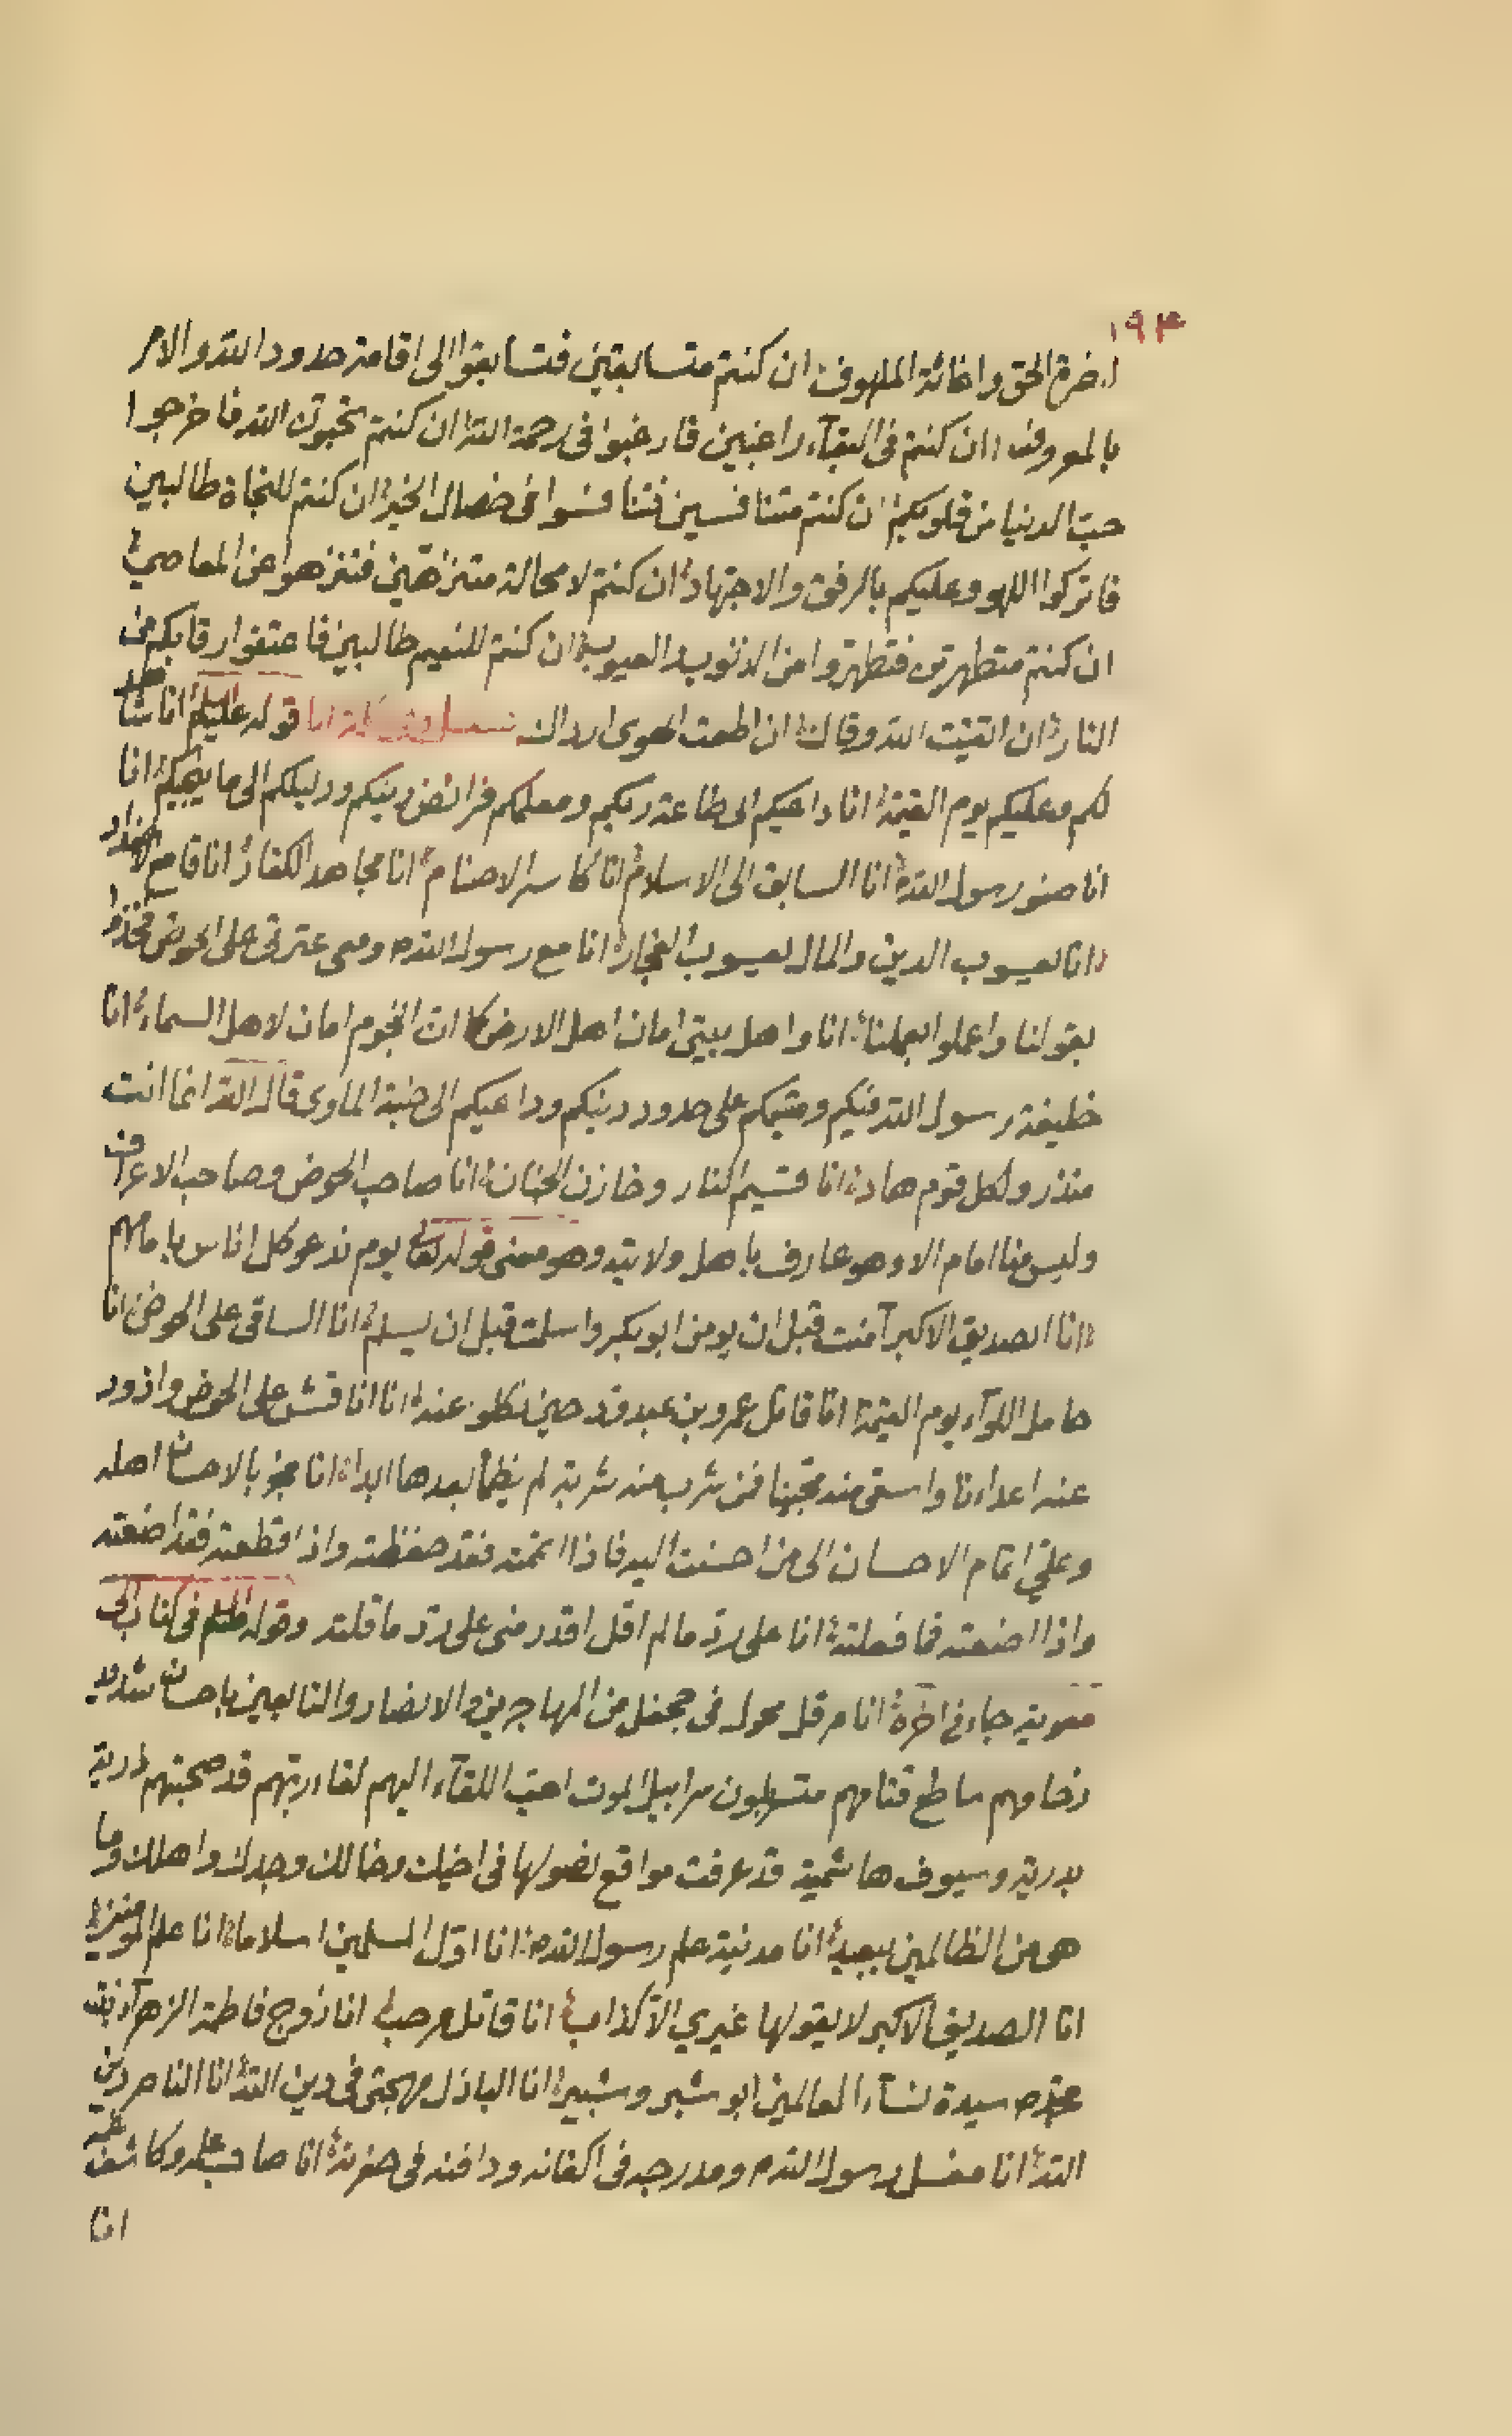 ١٩٣
لنصرة الحق واغاثة الملهوف ان كنتم متسابقين فتسابقوا الى اقامة حدود الله والامر
بالمعروف ان كنتم فى البقآء راغبين فارغبوا فى رحمة الله ان كنتم تحبون الله فاخرجوا
حب الدنيا من قلوبكم ان كنتم متنافسين فتنافسوا فى خصال الخير ان كنتم للنجاة طالبين
فاتركوا اللهو وعليكم بالرفق والاجتهاد ان كنتم لا محالة متنزهين فتنزهوا عن المعاصي
ان كنتم متطهرين فتطهروا من الذنوب والعيوب ان كنتم للنعيم طالبين فاعتقوا رقابكم من
النار ان اتقيت الله وقاك ان اطعت الهوى ارداك انا قوله عليه السلم انا شاهد
لكم وعليكم يوم القيمة انا داعيكم الى طاعة ربكم ومعلمكم فرائض دينكم ودليلكم الى ما ينجيكم انا
انا صنو رسول الله انا السابق الى الاسلام انا كاسر الاصنام انا مجاهد الكفار انا قامع الاضداد
انا يعسوب الدين والمال يعسوب الفجار انا مع رسول الله ص ومعى عترتى على الحوض فخذوا
بقولنا واعملوا بعملنا انا واهل بيتى امان اهل الارض كما ان النجوم امان لاهل السماء انا
خليفة رسول الله فيكم ومقيمكم على حدود دينكم وداعيكم الى جنة الماوى قال الله انما انت
منذر ولكل قوم هاد انا قسيم النار وخازن الجنان انا صاحب الحوض وصاحب الاعراف
وليس منا امام الا وهو عارف باهل ولايته وهو معنى قوله تعالى يوم ندعو كل اناس بامامهم
انا الصديق الاكبر آمنت قبل ان يومن ابو بكر واسلمت قبل ان يسلم انا الساقى على الحوض انا
حامل اللوآء يوم القيمة انا قاتل عمرو بن عبد ود حين نكلو عنه انا انا على الحوض واذود
عنه اعداءنا واسقى منه محبينا فمن شرب منه شربة لم يظمأ بعدها ابدا انا بالاحسان اهله
وعلىّ اتمام الاحسان الى من احسنت اليه فاذا اتممته فقد حفظته واذا قطعته فقد اضعته
واذا اضعته فما فعلته انا على رد ما لم اقل اقدر منى على رد ما قلته وقوله السلم فى كتاب الى
معوية جاء فى اخره انا مرقل نحوك فى جحفل من المهاجرين والانصار والتابعين باحسان شديد
زحامهم ساطع قتامهم متسربلون سرابيل الموت احبّ اللقآء اليهم لقاء ربهم قد صحبتهم ذرية
بدرية وسيوف هاشمية قد عرفت مواقع نصولها فى اخيك وخالك وجدك واهلك وما
هى من الظالمين ببعيد انا مدينة علم رسول الله ص انا اوّل المسلمين اسلاما انا علم المومنين
انا الصديق الاكبر لا يقولها غيري الاّ كذاب انا قاتل مرحب انا زوج فاطمة الزهرآء بنت
سيدة نسآء العالمين ابو شبر وشبير انا الباذل مهجتى فى دين الله انا الناصر دين
الله انا مغسل رسول الله ص ومدرجه فى اكفانه ودافنه فى حفرته انا صاحب علمه وكاشف غمه
انا